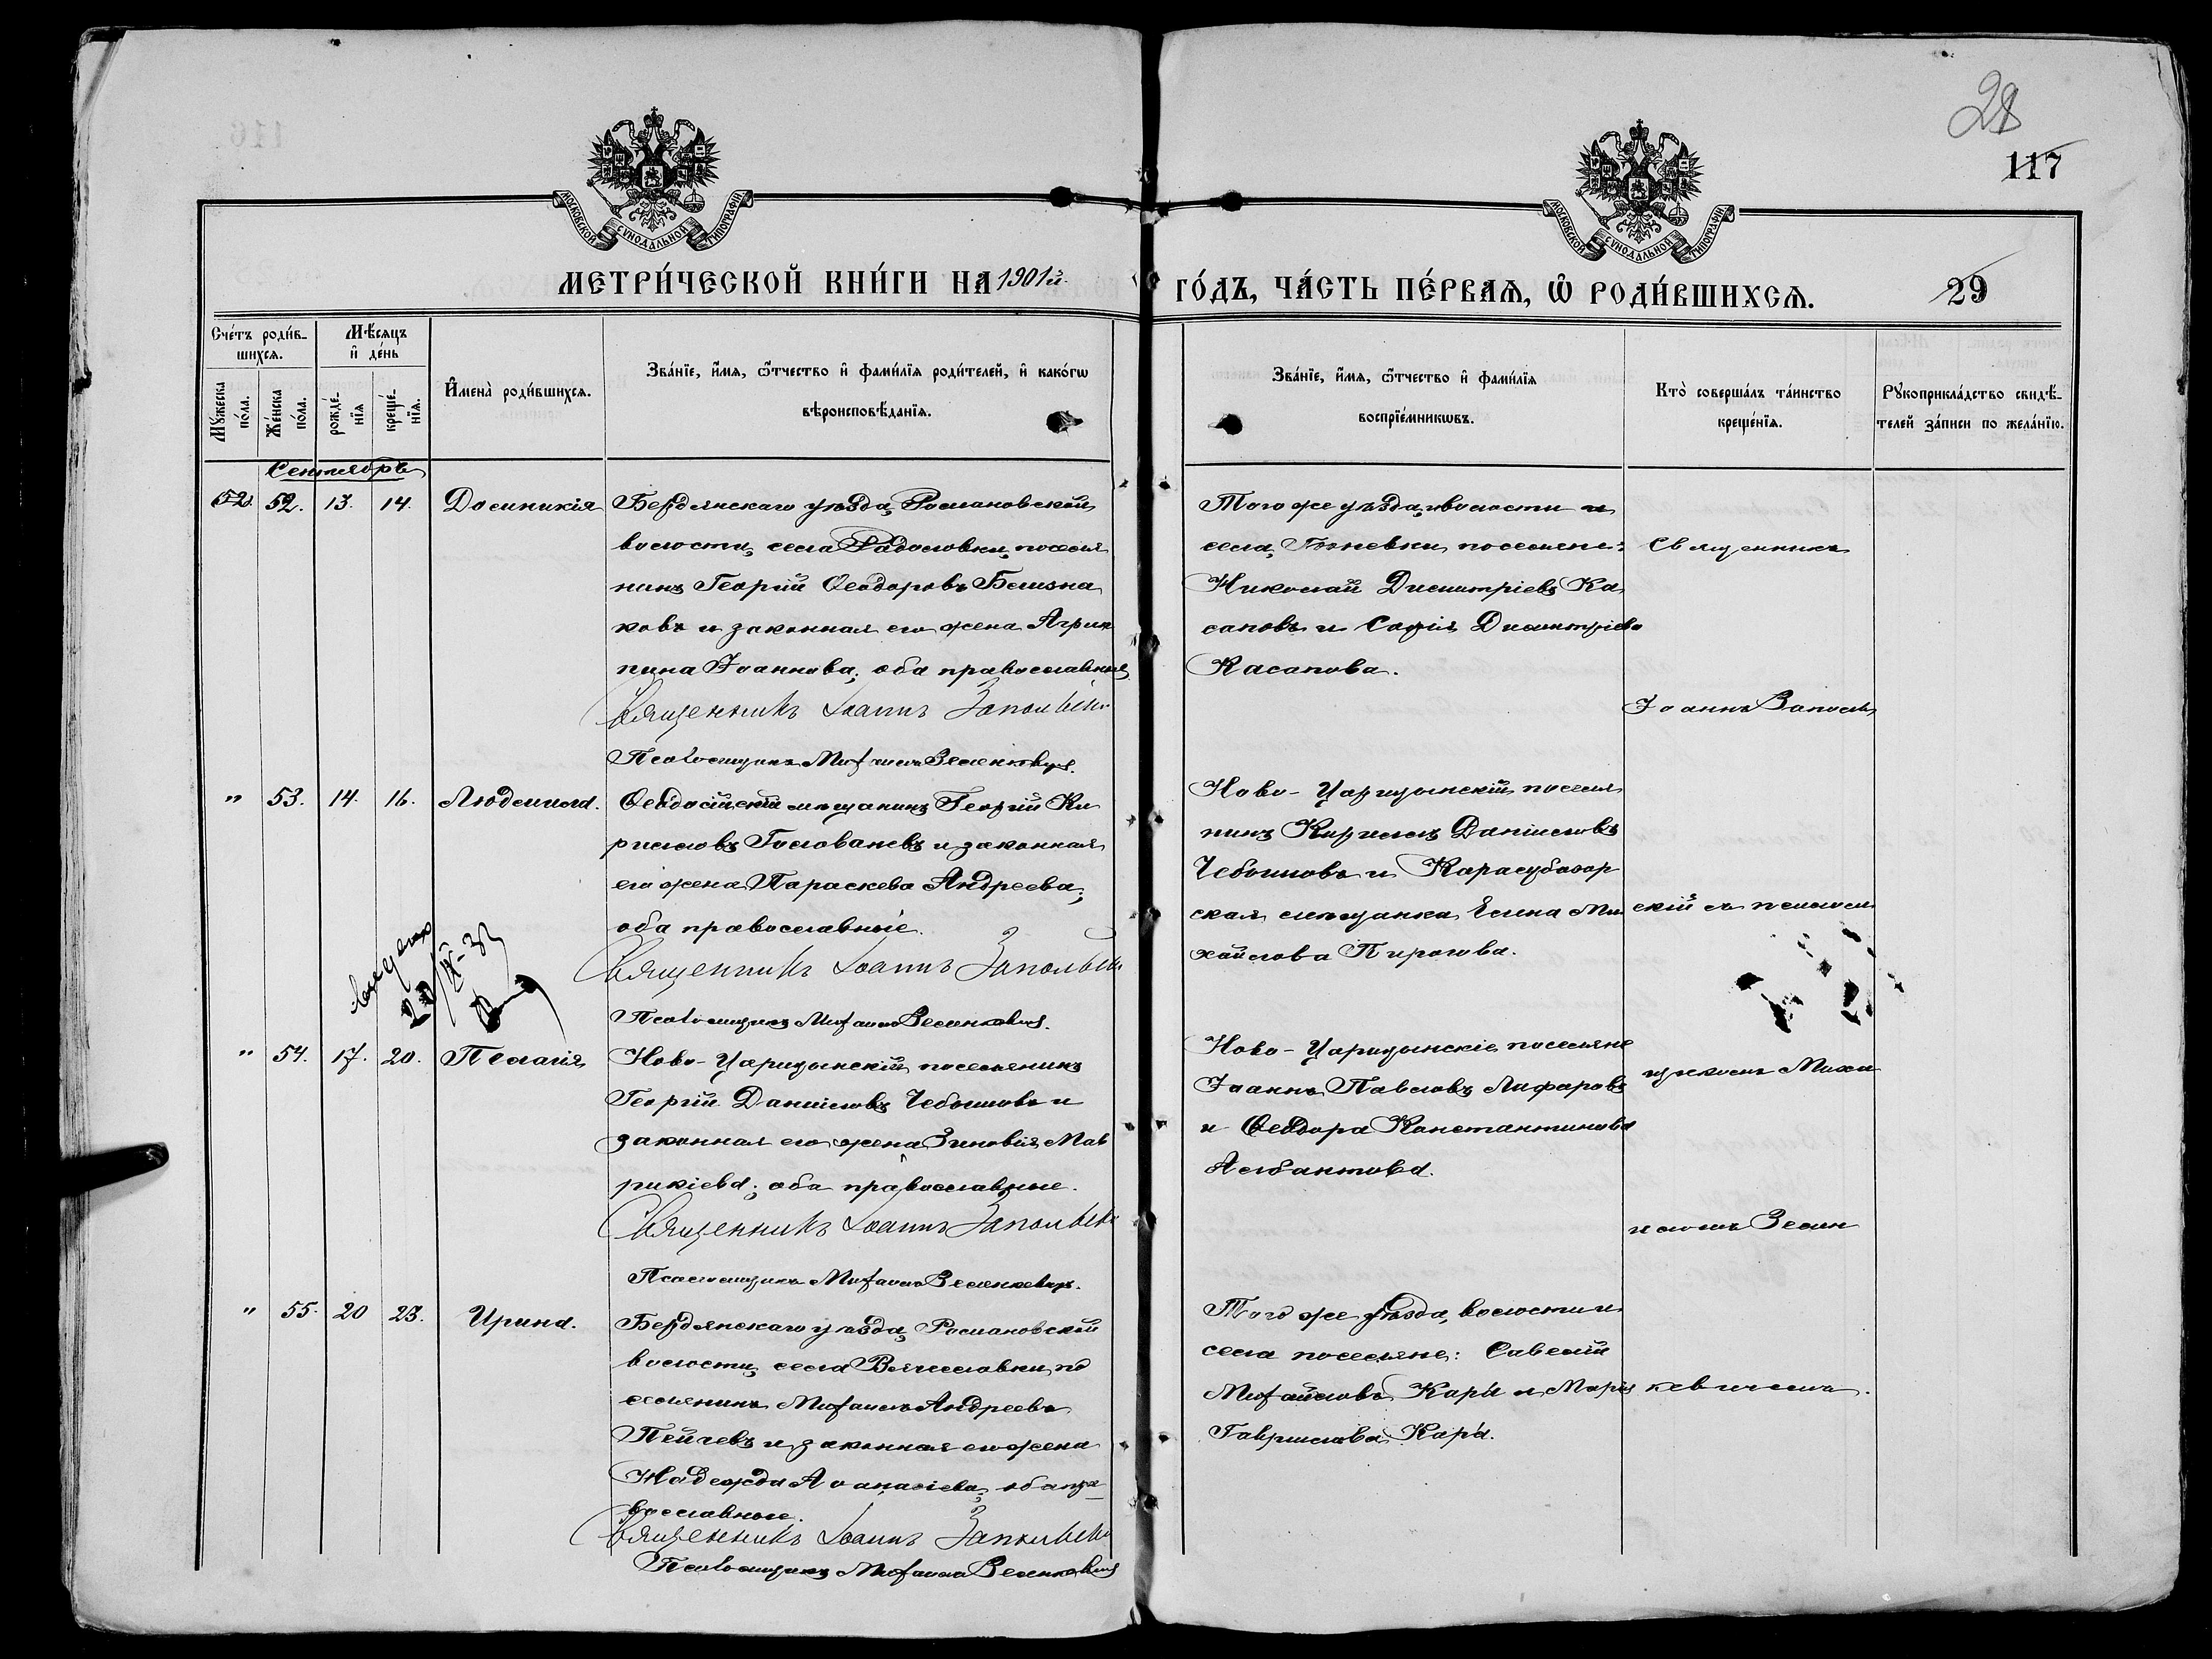 28
117
МОСКОВСКОЙ СѴНОДАЛЬНОЙ ТИПОГРАФІИ
МОСКОВСКОЙ СѴНОДАЛЬНОЙ ТИПОГРАФІИ
МЕТРИ́ЧЕСКОЙ КНИ́ГИ НА 1901й.
ГО́ДЪ, ЧА́СТЬ ПЕ́РВАѦ, Ѽ РОДИ́ВШИХСѦ.
29
Сче́тъ роди́в-
шихсѧ.
Мѣ́сяцъ
и҆ де́нь
Мꙋжеска
по́ла.
Же́нска
по́ла.
рожде́-
нїѧ
креще́-
нїѧ.
И҆мена̀ роди́вшихсѧ.
Зва́нїе, и҆́мѧ, ѻ҆́тчество и҆ фами́лїѧ роди́телей, и҆ како́гѡ
вѣроисповѣ́данїѧ.
Зва́нїе, и҆́мѧ, ѻ҆́тчество и҆ фами́лїѧ
воспрїе́мникѡвъ.
Кто̀ соверша́лъ та́инство
креще́нїѧ.
Рꙋкоприкла́дство свидѣ́-
телей за́писи по жела́нїю.
Сентябрь
52. 52. 13. 14. Домникія
Бердянскаго уѣзда, Романовской
волости, села Радоловки, поселя
нинъ Георгій Ѳеодоровъ
ковъ и законная его жена Агрип
пина Іоаннова; оба православные
Священникъ Іоаннъ Запольскій
Псаломщикъ Михаилъ Зеленкевичъ.
Того же уѣзда, волости и
села, поселяне:
Николай Димитріевъ Ка
саповъ и Софія Димитріева
Касапова.
Священникъ
Іоаннъ Заполь
" 53. 14. 16. Людмила.
Ѳеодосійскій мѣщанинъ Георгій Ки
рилловъ Голованевъ и законная
его жена Параскева Андреева;
оба православные.
Священникъ Іоаннъ Запольскій
Псаломщикъ Михаилъ Зеленкевичъ.
Ново-Царицынскій поселя
нинъ Кириллъ Даніиловъ
Чебышовъ и Карасубазар
ская мѣщанка Елена Ми
хайлова Пирогова.
скій съ псалом
20/IX-33
" 54. 17. 20. Пелагія
Ново-Царицынскій поселянинъ
Георгій Даніиловъ Чебышовъ и
законная его жена Зиновія Мав
рикіева; оба православные.
Священникъ Іоаннъ Запольскій
Псаломщикъ Михаилъ Зеленкевичъ.
Ново-Царицынскіе поселяне
Іоаннъ Павловъ Лифаровъ
и Ѳеодора Константинова
Асланова.
щикомъ Миха
иломъ Зелен
" 55. 20 23. Ирина.
Бердянскаго уѣзда, Романовской
волости, села Вячеславки, по
селянинъ Михаилъ Андреевъ
Пейчевъ и законная его жена
Надежда Аѳанасіева; оба пра
вославные.
Священникъ Іоаннъ Запольскій
Псаломщикъ Михаилъ Зеленкевичъ
Того же уѣзда, волости и
села поселяне: Савелій
Михайловъ Кара и Марія
Гаврилова Кара.
кевичемъ.